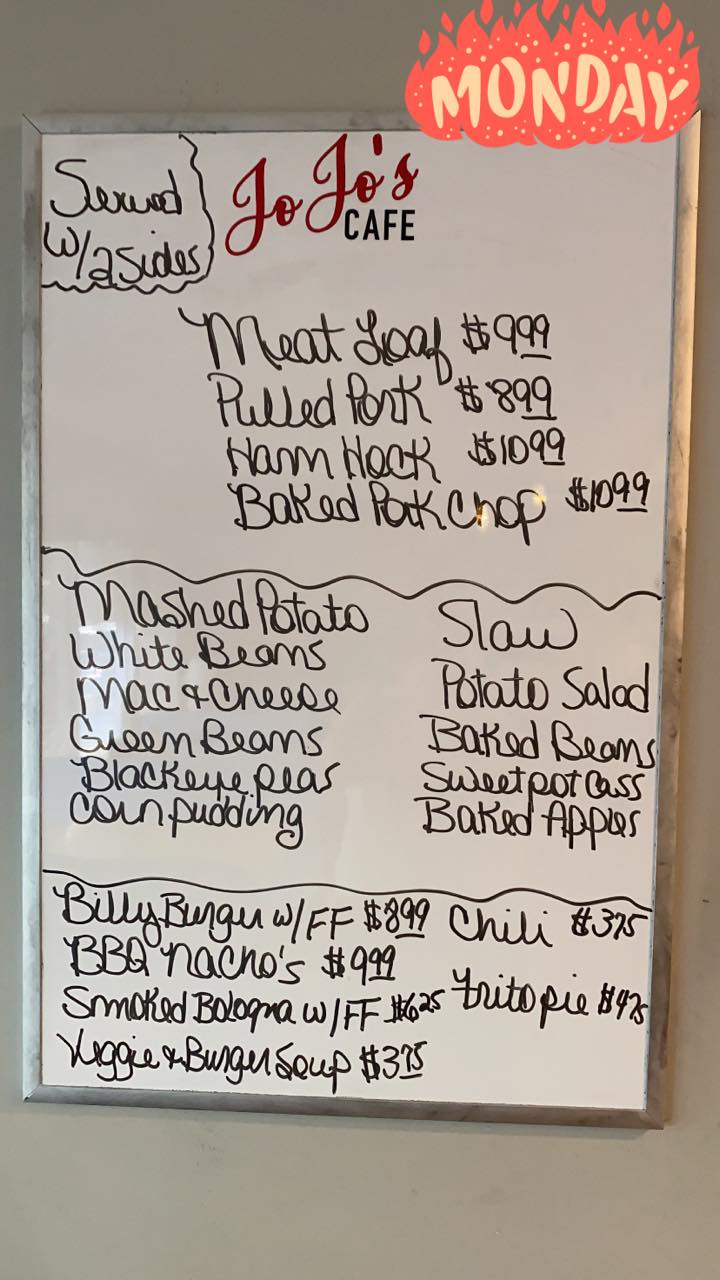 MONDAY
Served
W/2 Sides
JoJo's
CAFE
Meat Loaf $9.99
Pulled Pork $8.99
Ham Hock $10.99
Baked Pork Chop $10.99
Mashed Potato
White Beans
Mac & Cheese
Green Beans
Blackeye peas
Corn pudding
Slaw
Potato Salad
Baked Beans
Sweet pot Cass
Baked Apples
Billy Burger w/FF $8.99
BBQ Nacho's $9.99
Smoked Bologna w/FF $6.25
Veggie & Burger Soup $3.75
Chili $3.75
Frito pie $4.75